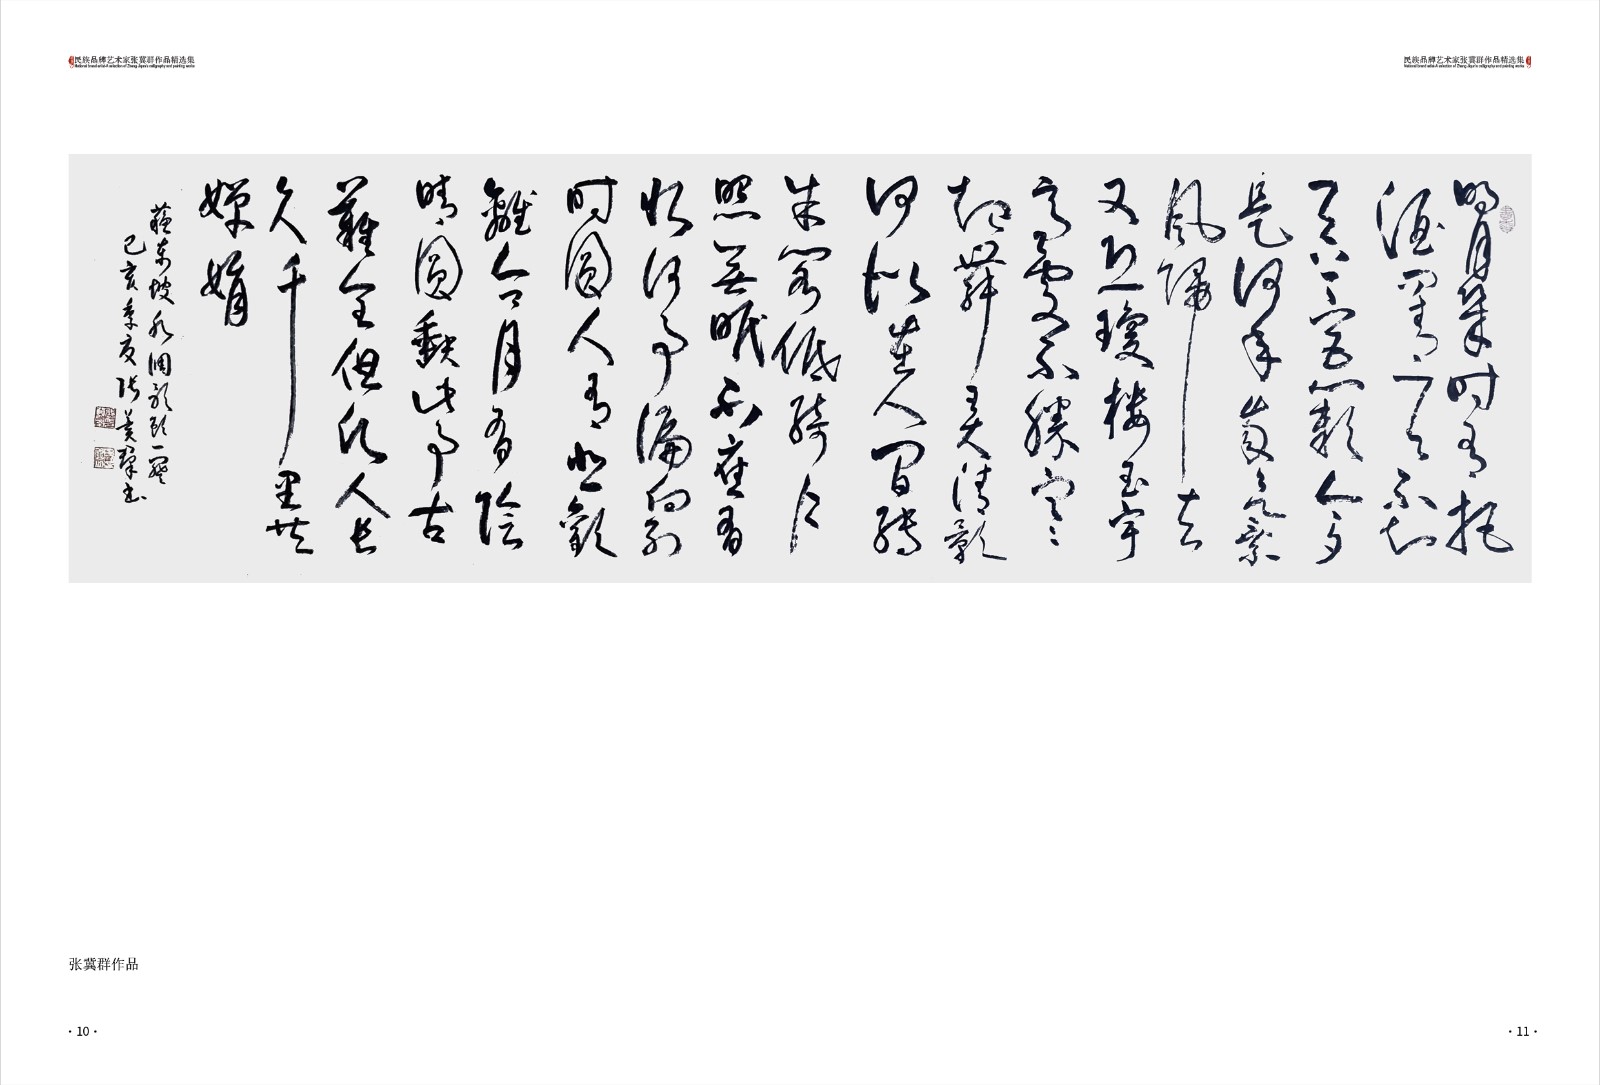 民族品牌艺术家张冀群作品精选集
National brand artist-A selection of Zhang Jiqun's calligraphy and painting works
民族品牌艺术家张冀群作品精选集
National brand artist-A selection of Zhang Jiqun's calligraphy and painting works
明月幾时有把
酒問青天不知
天上宫闕今夕
是何年我欲乘
风歸去
又恐瓊楼玉宇
高處不勝寒
起舞弄清影
何似在人間转
朱閣低绮户
照無眠不應有
恨何事偏向别
时圓人有悲歡
離合月有陰
晴圓缺此事古
難全但願人长
久千里共
嬋娟
蘇東坡水调歌头一闋
己亥季夏张冀群书
张冀群作品
·10·
·11·